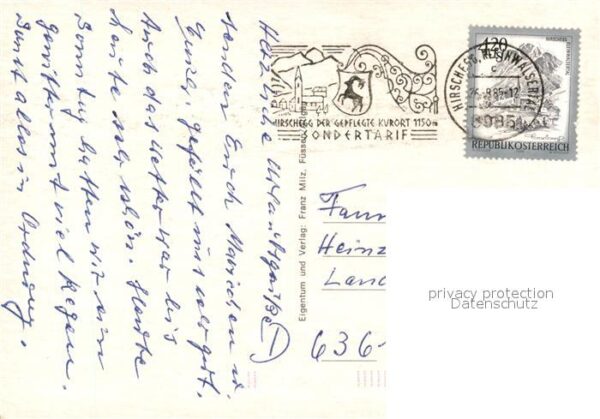 Herzliche Urlaubsgrüße
senden Euch Mariechen u.
gefällt uns sehr gut.
Auch das Wetter war bis
heute sehr schön. Heute
Sonntag hatten wir ein
Gewitter mit viel Regen.
Sonst alles in Ordnung.
HIRSCHEGG DER GEPFLEGTE KURORT 1150m
SONDERTARIF
HIRSCHEGG, KLEINWALSERTAL
26.-8.85-12
6985
4.20
REPUBLIK ÖSTERREICH
Eigentum und Verlag: Franz Milz, Füssen
Fam
Heinz
Land
636
privacy protection
Datenschutz